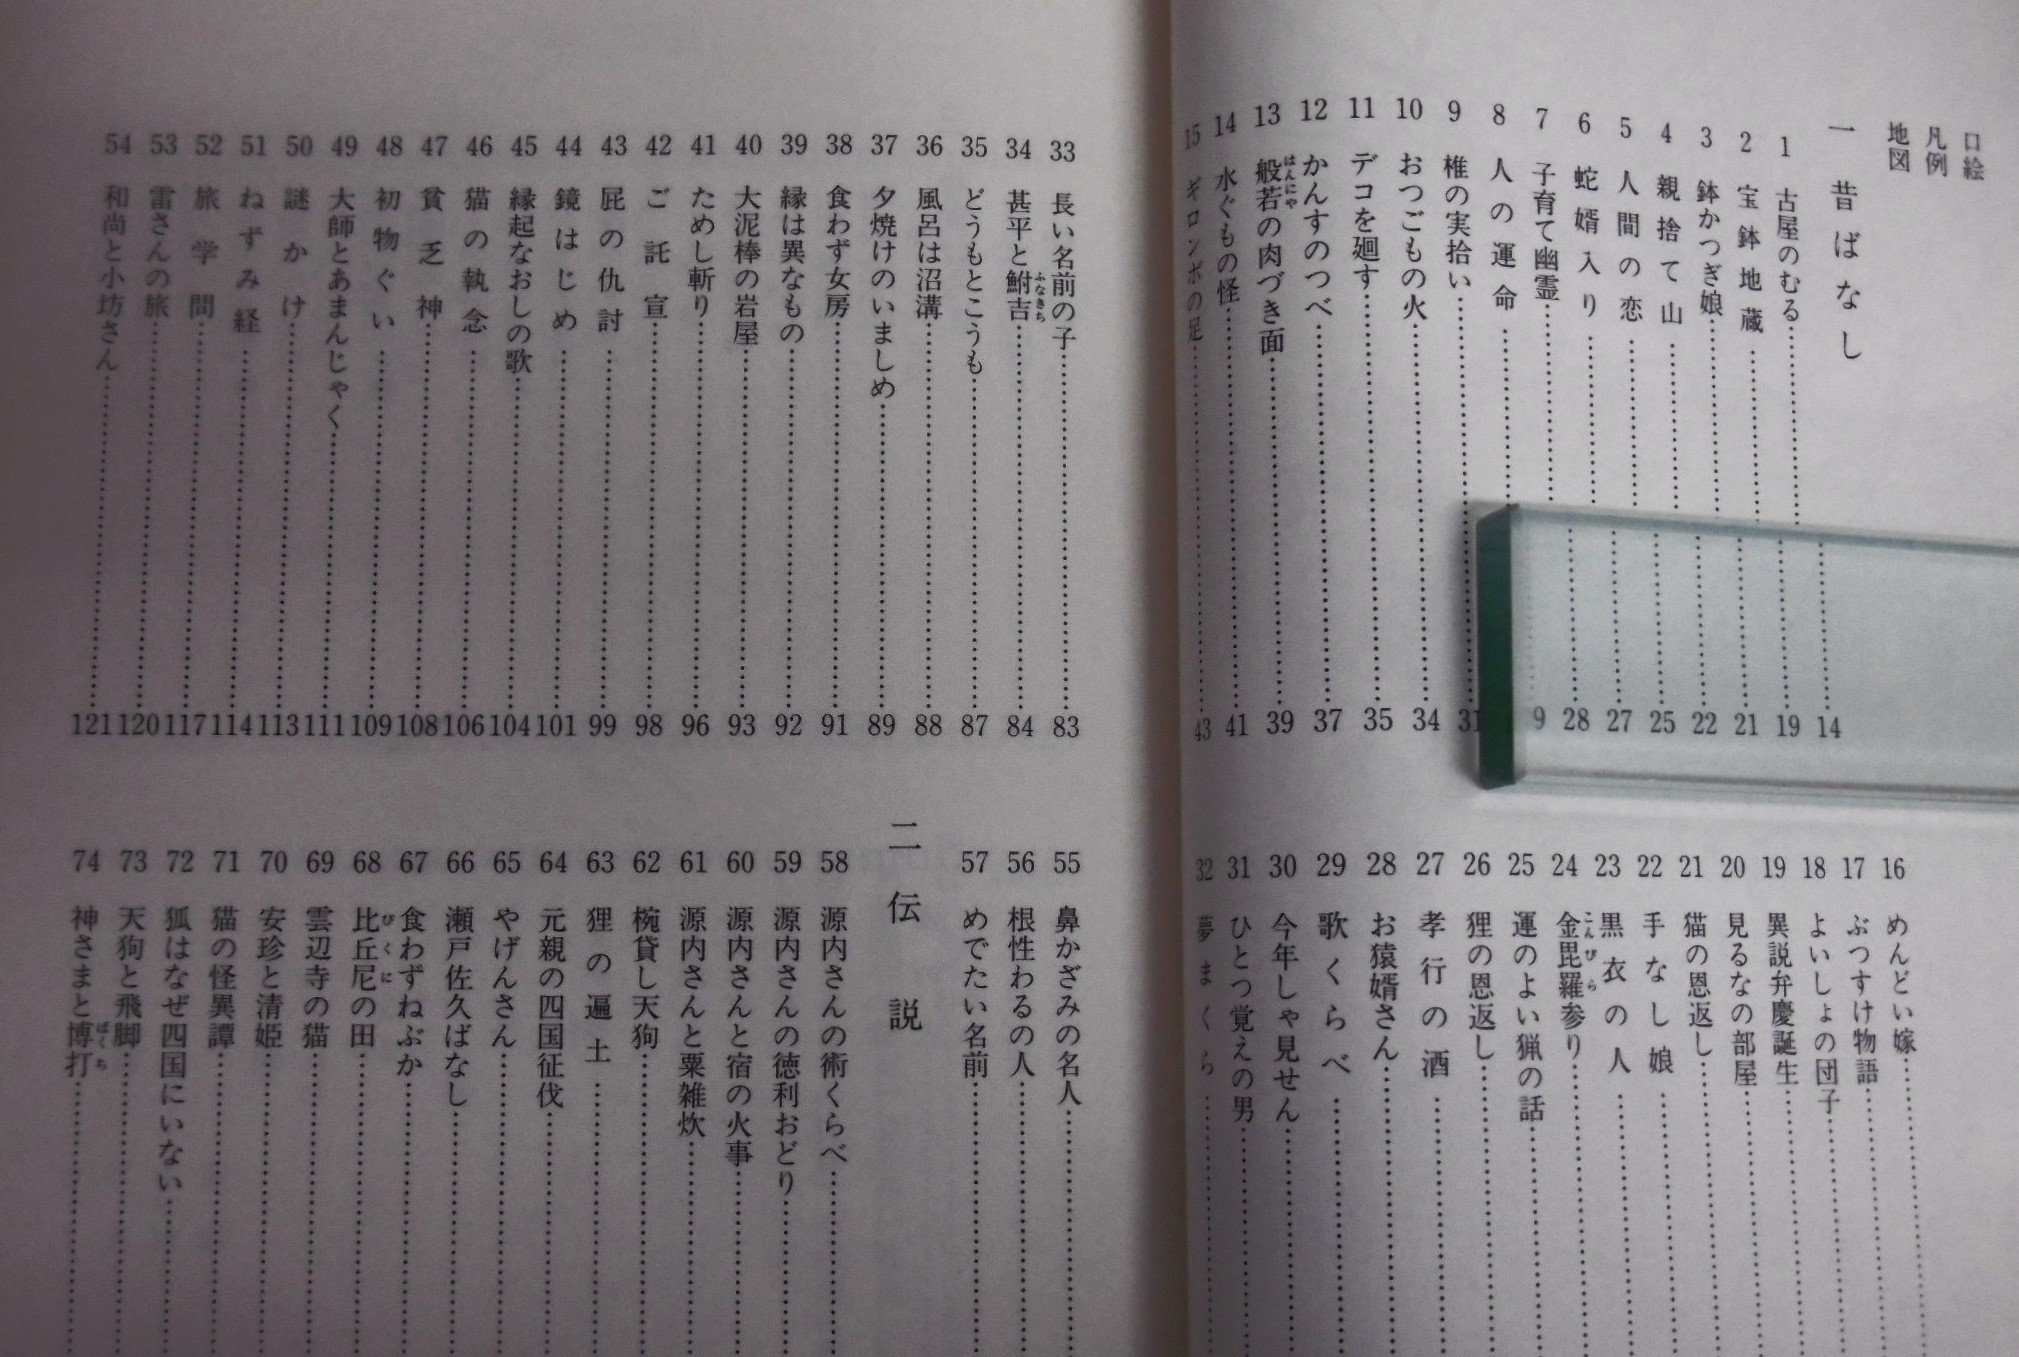 口絵
凡例
地図
一 昔ばなし
1 古屋のむる……14
2 宝鉢地蔵……19
3 鉢かつぎ娘……21
4 親捨て山……22
5 人間の恋……25
6 蛇婿入り……27
7 子育て幽霊……28
8 人の運命……9
9 椎の実拾い……31
10 おつごもの火……34
11 デコを廻す……35
12 かんすのつべ……37
13 般若の肉づき面……39
はんにや
14 水ぐもの怪……41
15 ギロンボの足……43
16 めんどい嫁
17 ぶつすけ物語
18 よいしょの団子
19 異説弁慶誕生
20 見るなの部屋
21 猫の恩返し
22 手なし娘
23 黒衣の人
24 金毘羅参り
こんぴら
25 運のよい猟の話
26 狸の恩返し
27 孝行の酒
28 お猿婿さん
29 歌くらべ
30 今年しゃ見せん
31 ひとつ覚えの男
32 夢まくら
33 長い名前の子……83
34 甚平と鮒吉……84
ふなきち
35 どうもとこうも……87
36 風呂は沼溝……88
37 夕焼けのいましめ……89
38 食わず女房……91
39 縁は異なもの……92
40 大泥棒の岩屋……93
41 ためし斬り……96
42 ご託宣……98
43 屁の仇討……99
44 鏡はじめ……101
45 縁起なおしの歌……104
46 猫の執念……106
47 貧乏神……108
48 初物ぐい……109
49 大師とあまんじゃく……111
50 謎かけ……113
51 ねずみ経……114
52 旅学問……117
53 雷さんの旅……120
54 和尚と小坊さん……121
55 鼻かざみの名人
56 根性わるの人
57 めでたい名前
二 伝説
58 源内さんの術くらべ
59 源内さんの徳利おどり
60 源内さんと宿の火事
61 源内さんと粟雑炊
62 椀貸し天狗
63 狸の遍土
64 元親の四国征伐
65 やげんさん
66 瀬戸佐久ばなし
67 食わずねぶか
68 比丘尼の田
びくに
69 雲辺寺の猫
70 安珍と清姫
71 猫の怪異譚
72 狐はなぜ四国にいない
73 天狗と飛脚
74 神さまと博打
ばくち